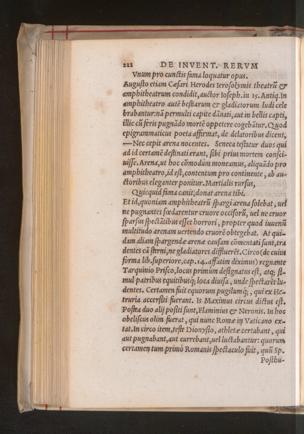 222 DE INVENT. RERVM
Vnum pro cunctis fama loquatur opus.
Augusto etiam Cæsari Herodes Ierosolymis theatrū &
amphitheatrum condidit, auctor Ioseph. in 15. Antiq. In
amphitheatro autē bestiarum & gladiatorum ludi cele
brabantur: nā permulti capite dānati, aut in bellis capti,
illic cū feris pugnādo mortē oppetere cogebātur. Quod
epigrammaticus poeta affirmat, de delatoribus dicent,
—Nec cepit arena nocentes. Seneca testatur duos qui
ad id certamē destinati erant, sibi prius mortem consci-
uisse. Arena, ut hoc cōmodùm moneamus, aliquādo pro
amphitheatro, id est, contentum pro continente, ab au-
ctoribus eleganter ponitur. Martialis rursus,
Quicquid fama canit, donat arena tibi.
Et id, quoniam amphitheatrū spargi arena solebat, uel
ne pugnantes fœdarentur cruore occisorū, uel ne cruor
sparsus spectātibus esset horrori, propter quod iuuenū
multitudo arenam uertendo cruorē obtegebat. At qui-
dam aliam spargendæ arenæ causam cōmentati sunt,
dentes cā sterni, ne gladiatores difflueret. Circo (de cuius
forma lib. superiore, cap. 14. affatim diximus) regnante
Tarquinio Prisco, locus primùm designatus est, atq; si-
mul patribus equitibusq; loca diuisa, unde spectarēt lu-
dentes. Certamen fuit equorum pugilumq; qui ex He-
truria accersiti fuerant. Is Maximus circus dictus est.
Postea duo alij positi sunt, Flaminius & Neronis. In hoc
obeliscus olim fuerat, qui nunc Romæ in Vaticano ex-
tat. In circo item, teste Dionysio, athletæ certabant, qui
aut pugnabant, aut currebant, uel luctabantur: quorum
certamen tum primò Romanis spectaculo fuit, quū Sp.
Posthu-